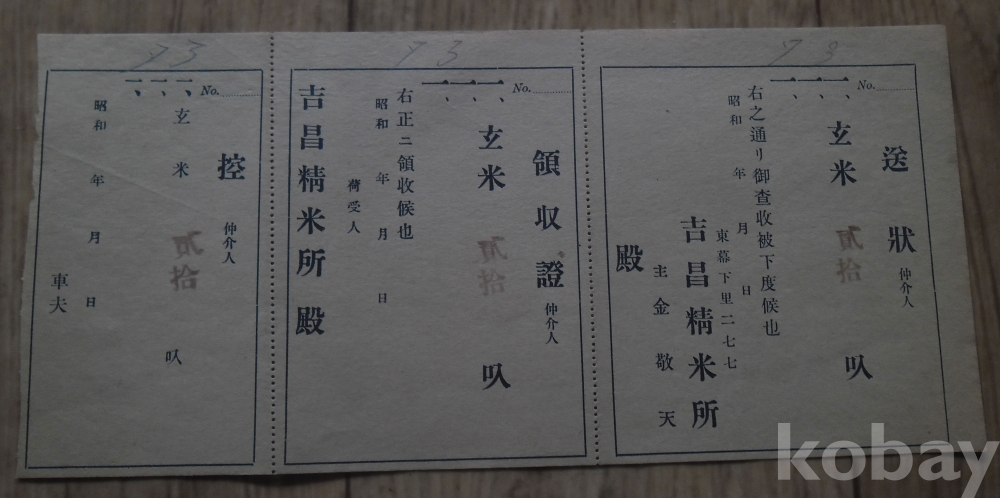 送狀 仲介人
No.
一、玄米 貳拾 叺
右之通リ御査收被下度候也
昭和 年 月 日
東幕下里二七七
吉昌精米所
主 金敬天
殿
領收證 仲介人
No.
一、玄米 貳拾 叺
右正ニ領收候也
昭和 年 月 日
荷受人
吉昌精米所殿
控 仲介人
No.
一、玄米 貳拾 叺
昭和 年 月 日
車夫
kobay